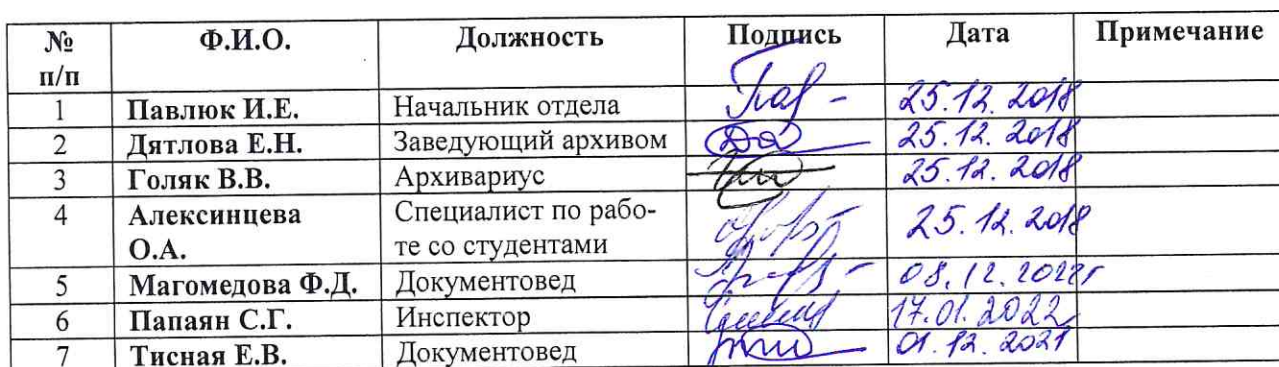 № п/п Ф.И.О. Должность Подпись Дата Примечание
1 Павлюк И.Е. Начальник отдела 25.12.2018
2 Дятлова Е.Н. Заведующий архивом 25.12.2018
3 Голяк В.В. Архивариус 25.12.2018
4 Алексинцева Специалист по рабо-
О.А. те со студентами 25.12.2018
5 Магомедова Ф.Д. Документовед
6 Папаян С.Г. Инспектор 17.01.2022
7 Тисная Е.В. Документовед 01.12.2021